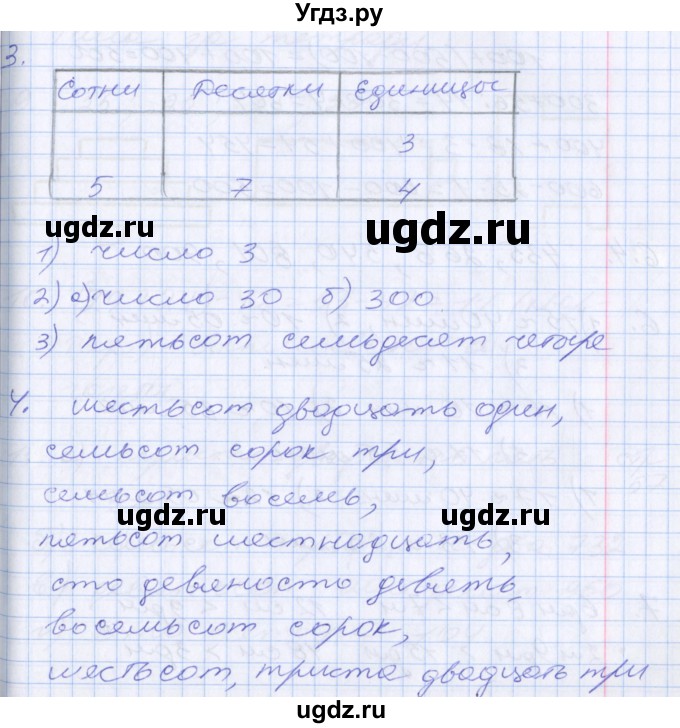 Угдз.ру
3.
Сотни Десятки Единицы
3
5 7 4
ugdz.ru ugdz.ru
1) число 3
2) а) число 30 б) 300
3) пятьсот семьдесят четыре
4. шестьсот двадцать один,
семьсот сорок три,
семьсот восемь,
ugdz.ru ugdz.ru
пятьсот шестнадцать,
сто девяносто девять,
восемьсот сорок,
шестьсот, триста двадцать три
ugdz.ru ugdz.ru